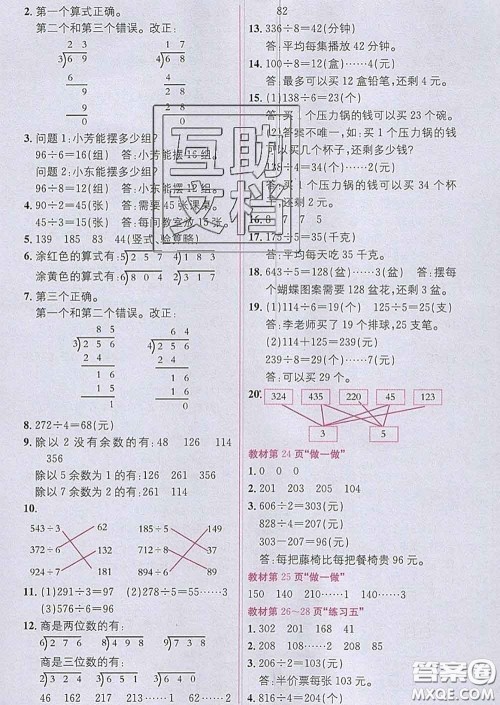 2. 第一个算式正确。
第二个和第三个错误。改正:
2 3
3)6 9
6
9
9
0
2 4
2)4 8
4
8
8
0
3. 问题 1:小芳能摆多少组?
96÷6=16(组) 答:小芳能摆 16 组。
问题 2:小东能摆多少组?
96÷8=12(组)
4. 90÷2=45(张) 答:需要 45 张课桌。
45÷3=15(张) 答:每间教室放 15 张。
5. 139 185 83 44(竖式、验算略)
6. 涂红色的算式有:5)2 5 7 4)1 8 3
涂黄色的算式有:5)6 1 5 2)3 1 7
7. 第三个正确。
第一个和第二个错误。改正:
8 5
3)2 5 6
2 4
1 6
1 5
1
6 4
2)1 2 8
1 2
8
8
0
8. 272÷4=68(元)
9. 除以 2 没有余数的有: 48 126 114
356
除以 5 余数为 1 的有: 126 251 356
10.
543÷3 62
372÷6 132
924÷7 181
185÷5 149
447÷3 89
712÷8 37
11. (1)291÷3=97 (2)278÷5=55……3
(3)576÷9=64
12. 商是两位数的有:
6)2 7 6 5)4 9 8 9)7 3 8
商是三位数的有:
4)6 4 8 3)6 2 9
46 162 217……2
82
13. 336÷8=42(分钟)
答:平均每集播放 42 分钟。
14. 100÷8=12(盒)……4(元)
答:最多可以买 12 盒铅笔,还剩 4 元。
15. (1)138÷6=23(个)
答:买 1 个压力锅的钱可以买 23 个碗。
(2)答案不唯一,如:买 1 个压力锅的钱可以买几个杯子,还剩多少钱?
答:买 1 个压力锅的钱可以买 34 个杯子,还剩 2 元。
16. 8 7
17. 175÷5=35(千克)
答:平均每天吃 35 千克。
18. 643÷5=128(盆)……3(盆) 答:摆每个蝴蝶图案需要 128 盆花,还剩 3 盆。
19. (1)114÷6=19(个) 125÷5=25(支)
答:李老师买了 19 个排球,25 支笔。
(2)114+125=239(元)
239÷8=29(个)……7(元)
答:可以买 29 个。
20. 324 435 220 45 123
3 5
教材第 24 页“做一做”
1. 0 0 0
2. 201 203 105 104
3. 606÷2=303(元)
828÷4=207(元)
303-207=96(元)
答:每把藤椅比每把餐椅贵 96 元。
教材第 25 页“做一做”
150 140 210……1 110……3
教材第 26~28 页“练习五”
1. 302 201 48 168
2. 203 104 105……4
3. 206÷2=103(元)
答:半价票每张 103 元。
4. 816÷4=204(个)
互助
文档
答案圈
MXQE.COM